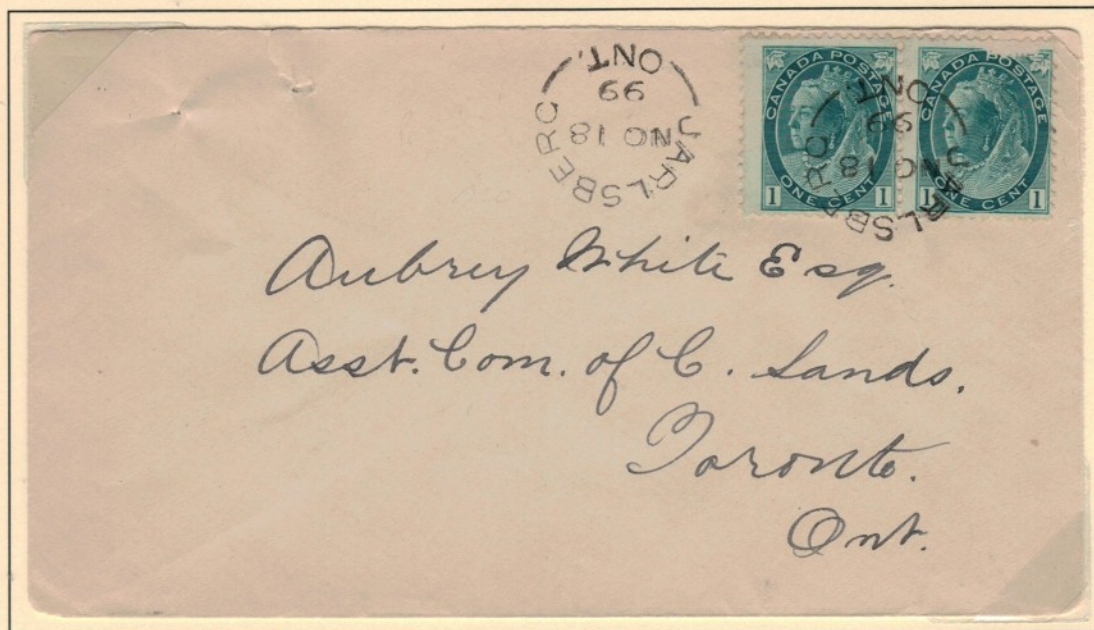 JARLSBERG
NO 18
99
ONT.
CANADA POSTAGE
1 ONE CENT 1
CANADA POSTAGE
1 ONE CENT 1
JARLSBERG
NO 18
99
ONT.
Aubrey White Esq.
Asst. Com. of C. Lands.
Toronto.
Ont.